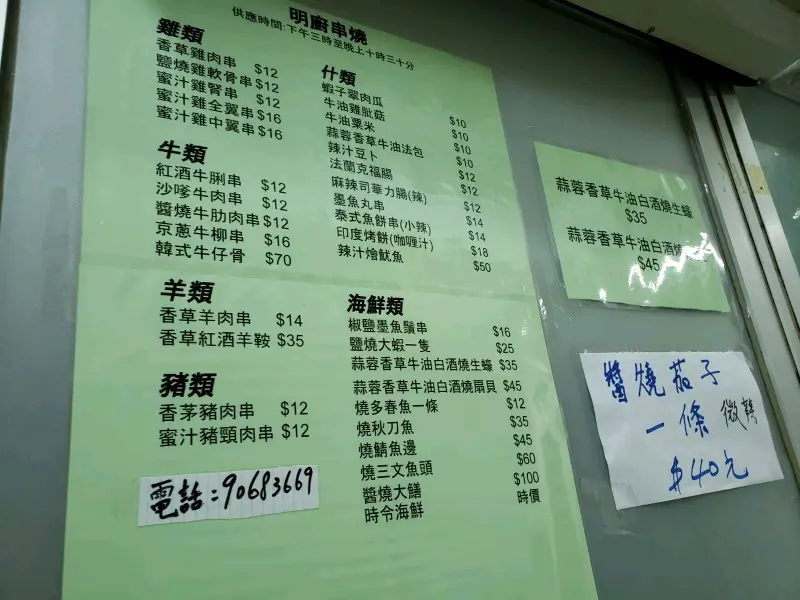 明廚串燒
供應時間:下午三時至晚上十時三十分
雞類
香草雞肉串 $12
鹽燒雞軟骨串 $12
蜜汁雞腎串 $12
蜜汁雞全翼串 $16
蜜汁雞中翼串 $16
牛類
紅酒牛脷串 $12
沙嗲牛肉串 $12
醬燒牛肋肉串 $12
京蔥牛柳串 $16
韓式牛仔骨 $70
羊類
香草羊肉串 $14
香草紅酒羊鞍 $35
豬類
香茅豬肉串 $12
蜜汁豬頸肉串 $12
電話:90683669
什類
蝦子翠肉瓜 $10
牛油雞肶菇 $10
牛油粟米 $10
蒜蓉香草牛油法包 $10
辣汁豆卜 $12
法蘭克福腸 $12
麻辣司華力腸(辣) $12
墨魚丸串 $14
泰式魚餅串(小辣) $14
印度烤餅(咖喱汁) $18
辣汁燴魷魚 $50
海鮮類
椒鹽墨魚鬚串 $16
鹽燒大蝦一隻 $25
蒜蓉香草牛油白酒燒生蠔 $35
蒜蓉香草牛油白酒燒扇貝 $45
燒多春魚一條 $12
燒秋刀魚 $35
燒鯖魚邊 $45
燒三文魚頭 $60
醬燒大鱔 $100
時令海鮮 時價
蒜蓉香草牛油白酒燒生蠔
$35
蒜蓉香草牛油白酒燒
$45
醬燒茄子
一條 微辣
$40元